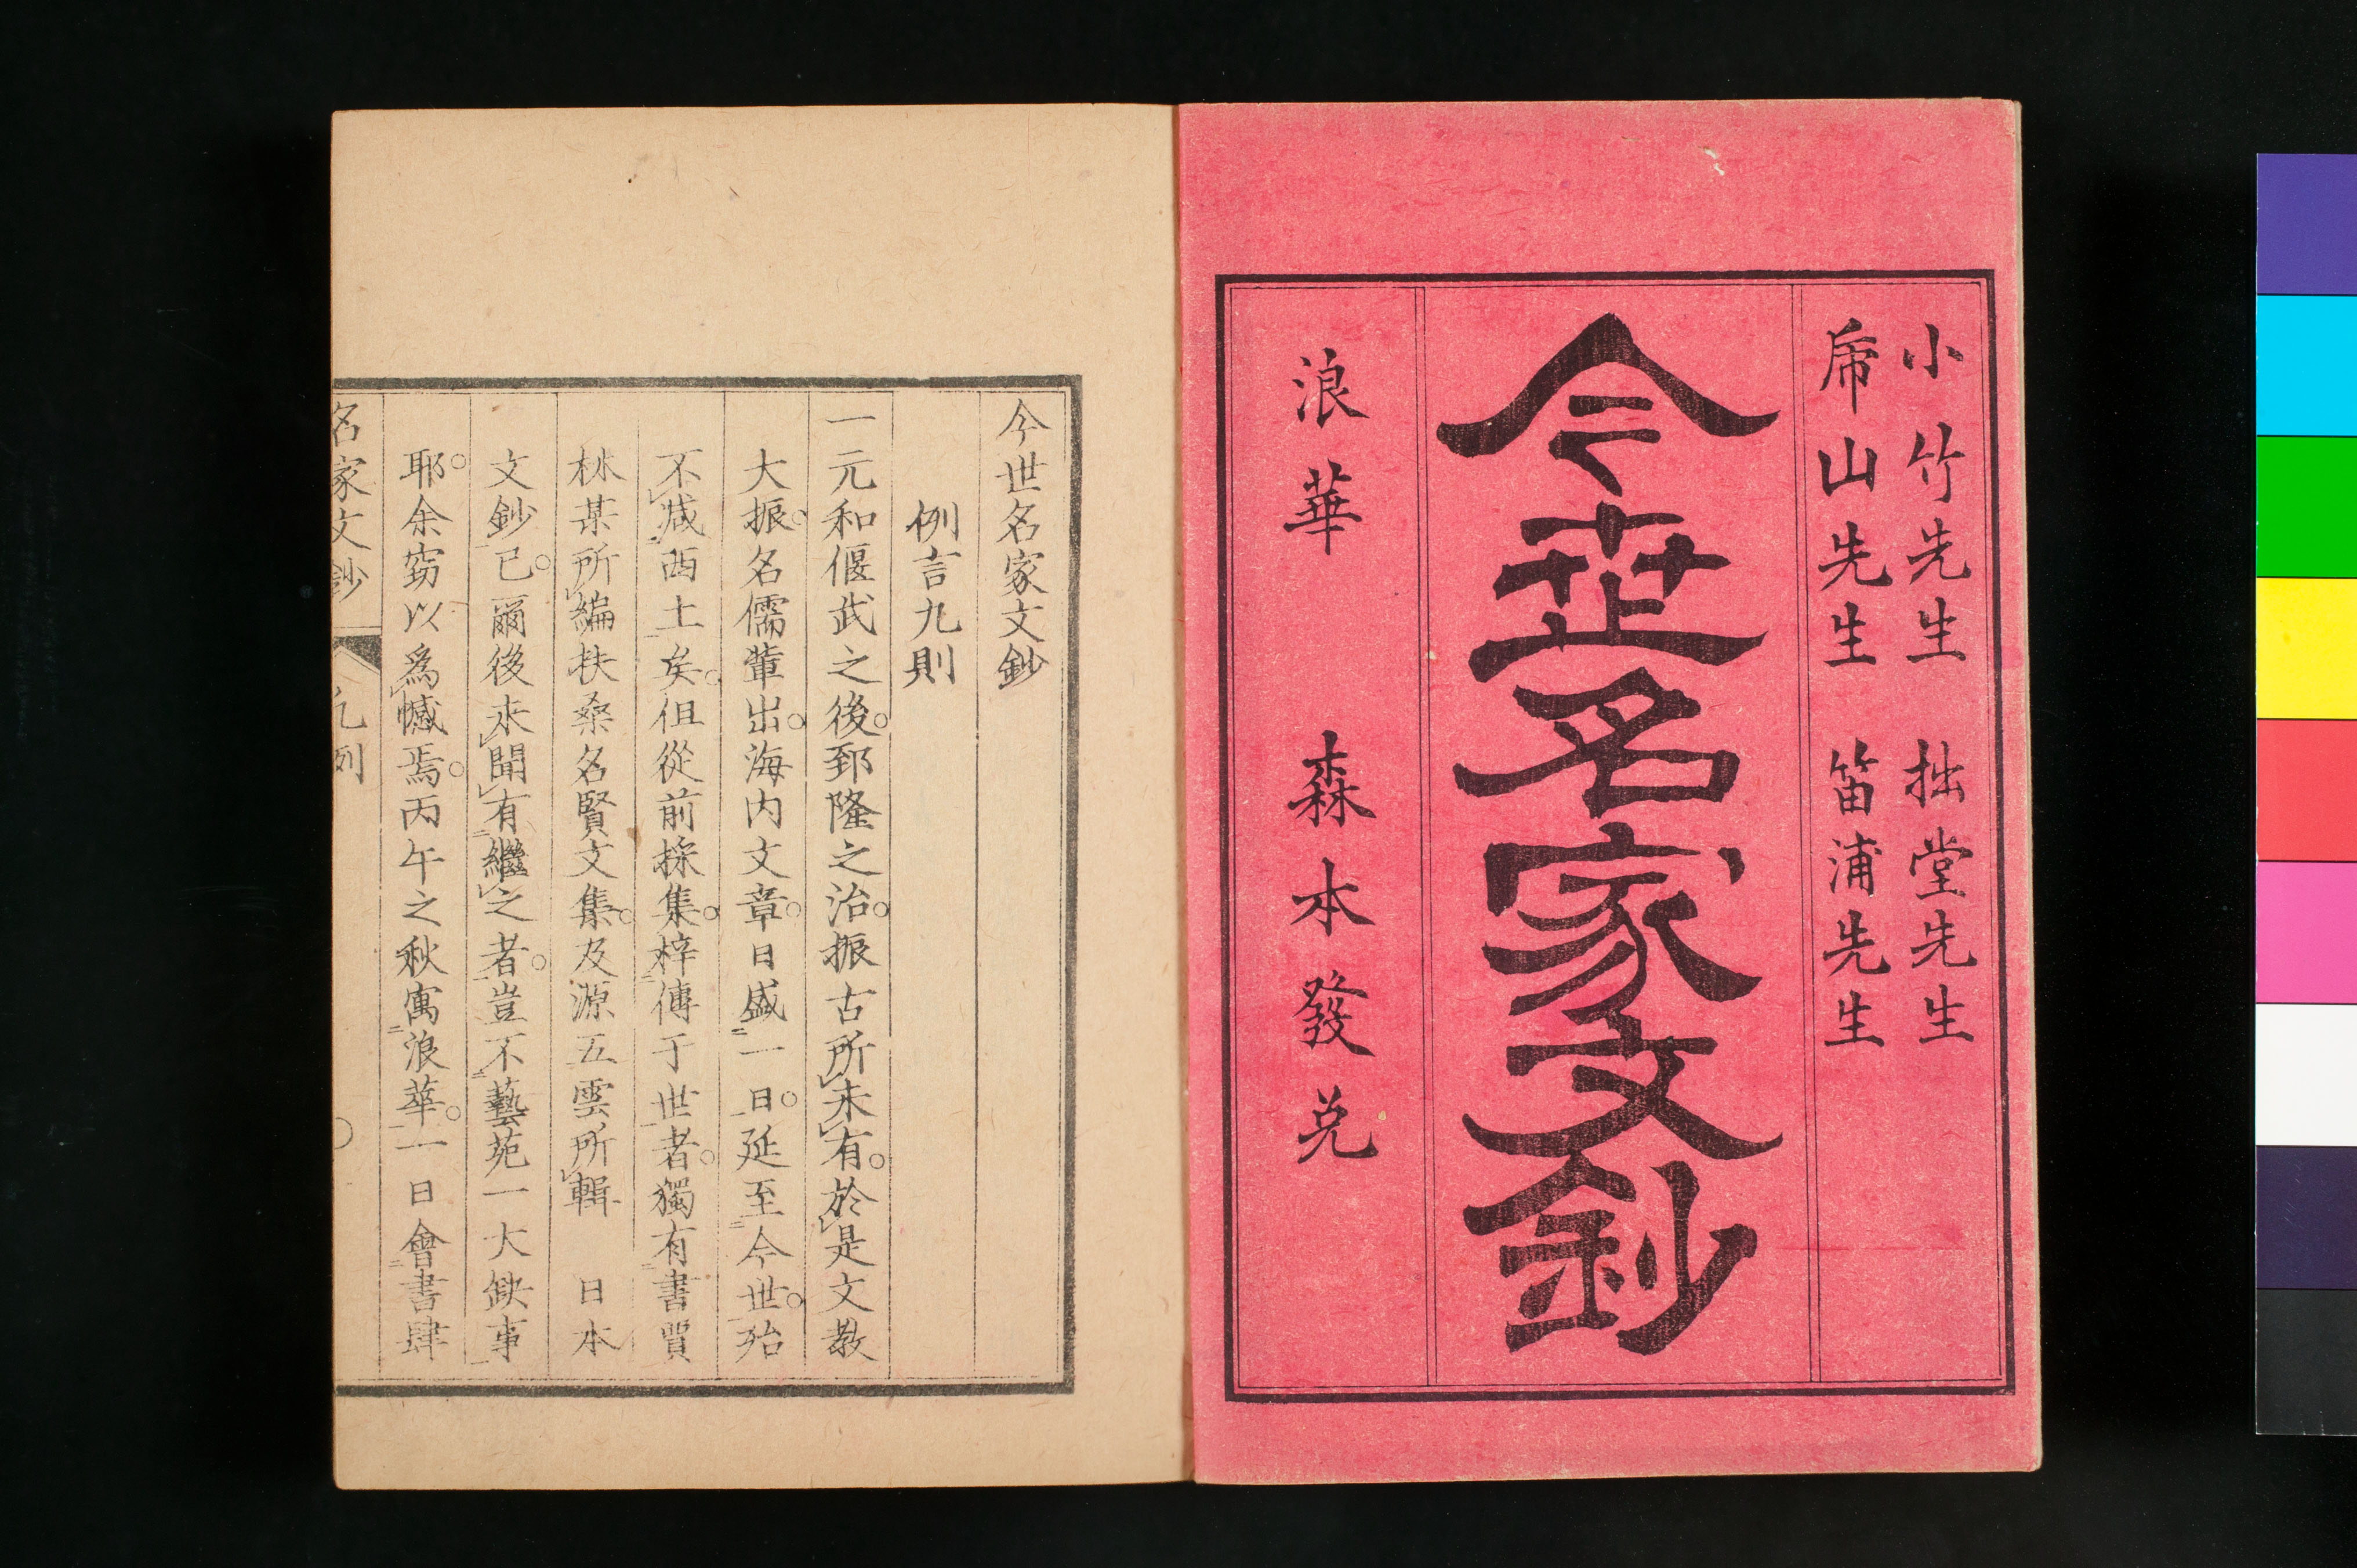 小竹先生 拙堂先生
虎山先生 笛浦先生
今世名家文鈔
浪華 森本發兌
今世名家文鈔
例言九則
一元和偃武之後。郅隆之治。振古所未有。於是文教
大振。名儒輩出。海内文章。日盛一日。延至今世。殆
不減西土矣。但從前採集。梓傳于世者。獨有書賈
林某所編扶桑名賢文集。及源五雲所輯 日本
文鈔已。爾後未聞有繼之者。豈不藝苑一大缺事
耶。余竊以爲憾焉。丙午之秋寓浪華。一日會書肆
名家文鈔 凡例